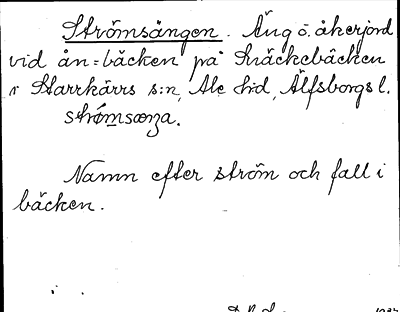 Strömsängen. Äng o. åkerjord
vid ån = bäcken på Knäckebäcken
i Starrkärrs s:n, Ale h:d, Älfsborgs l.
Namn efter ström och fall i
bäcken.